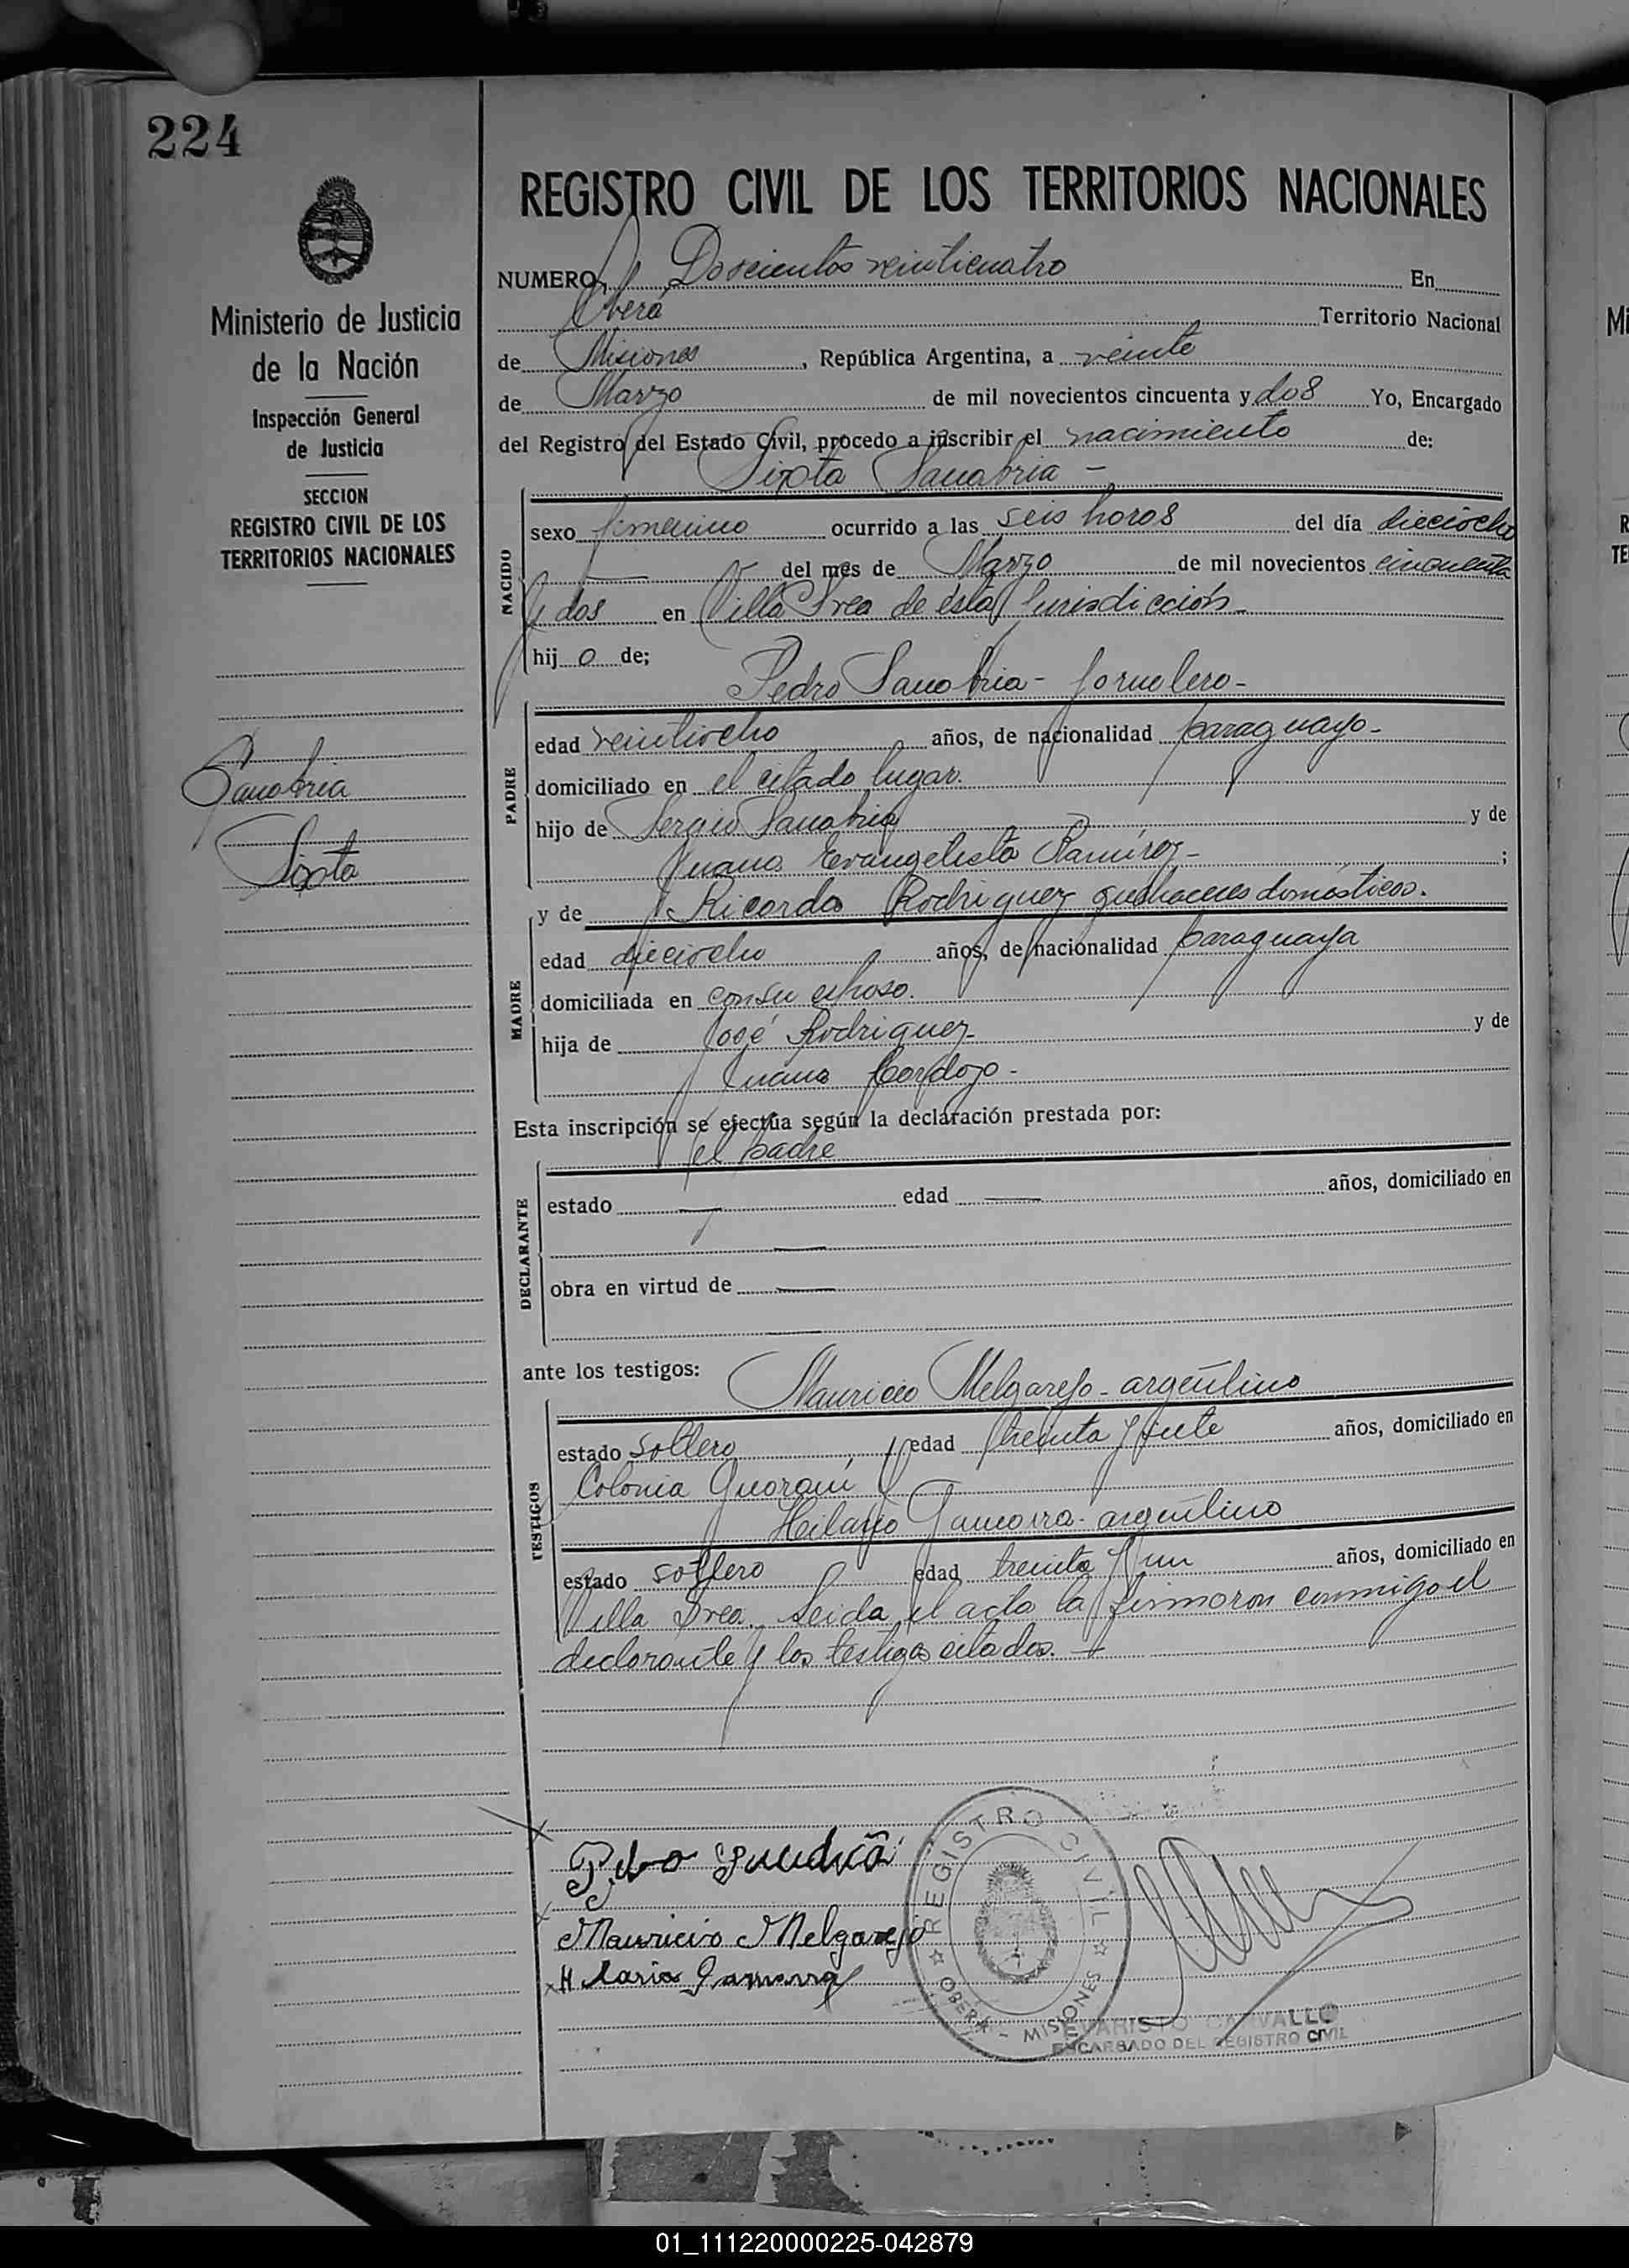 224
Ministerio de Justicia
de la Nación
Inspección General
de Justicia
SECCION
REGISTRO CIVIL DE LOS
TERRITORIOS NACIONALES
Sanabria
Sixta
REGISTRO CIVIL DE LOS TERRITORIOS NACIONALES
NUMERO Doscientos veinticuatro En
Oberá Territorio Nacional
de Misiones, República Argentina, a veinte
de Marzo de mil novecientos cincuenta y dos Yo, Encargado
del Registro del Estado Civil, procedo a inscribir el nacimiento de:
Sixta Sanabria -
NACIDO
sexo femenino ocurrido a las seis horas del día dieciocho
— del mes de Marzo de mil novecientos cincuenta
y dos en Villa Svea de esta Jurisdicción
hij o de;
Pedro Sanabria - Jornalero -
PADRE
edad veintiocho años, de nacionalidad paraguayo -
domiciliado en el citado lugar.
hijo de Sergio Sanabria y de
Juana Evangelista Ramírez - ;
MADRE
y de Ricarda Rodriguez quehaceres domésticos.
edad dieciocho años, de nacionalidad paraguaya
domiciliada en con su esposo.
hija de José Rodriguez y de
Juana Cardozo -
Esta inscripción se efectúa según la declaración prestada por:
el padre
DECLARANTE
estado — edad — años, domiciliado en
—
obra en virtud de —
—
ante los testigos:
Mauricio Melgarejo - argentino
TESTIGOS
estado soltero, edad treinta y siete años, domiciliado en
Colonia Guaraní y
Hilario Gamarra - argentino
estado soltero edad treinta y un años, domiciliado en
Villa Svea. Leida el acta la firmaron conmigo el
declarante y los testigos citados.
Mauricio Melgarejo
Hilario Gamarra
REGISTRO CIVIL
OBERÁ - MISIONES
EVARISTO CARVALLO
ENCARGADO DEL REGISTRO CIVIL
01_111220000225-042879